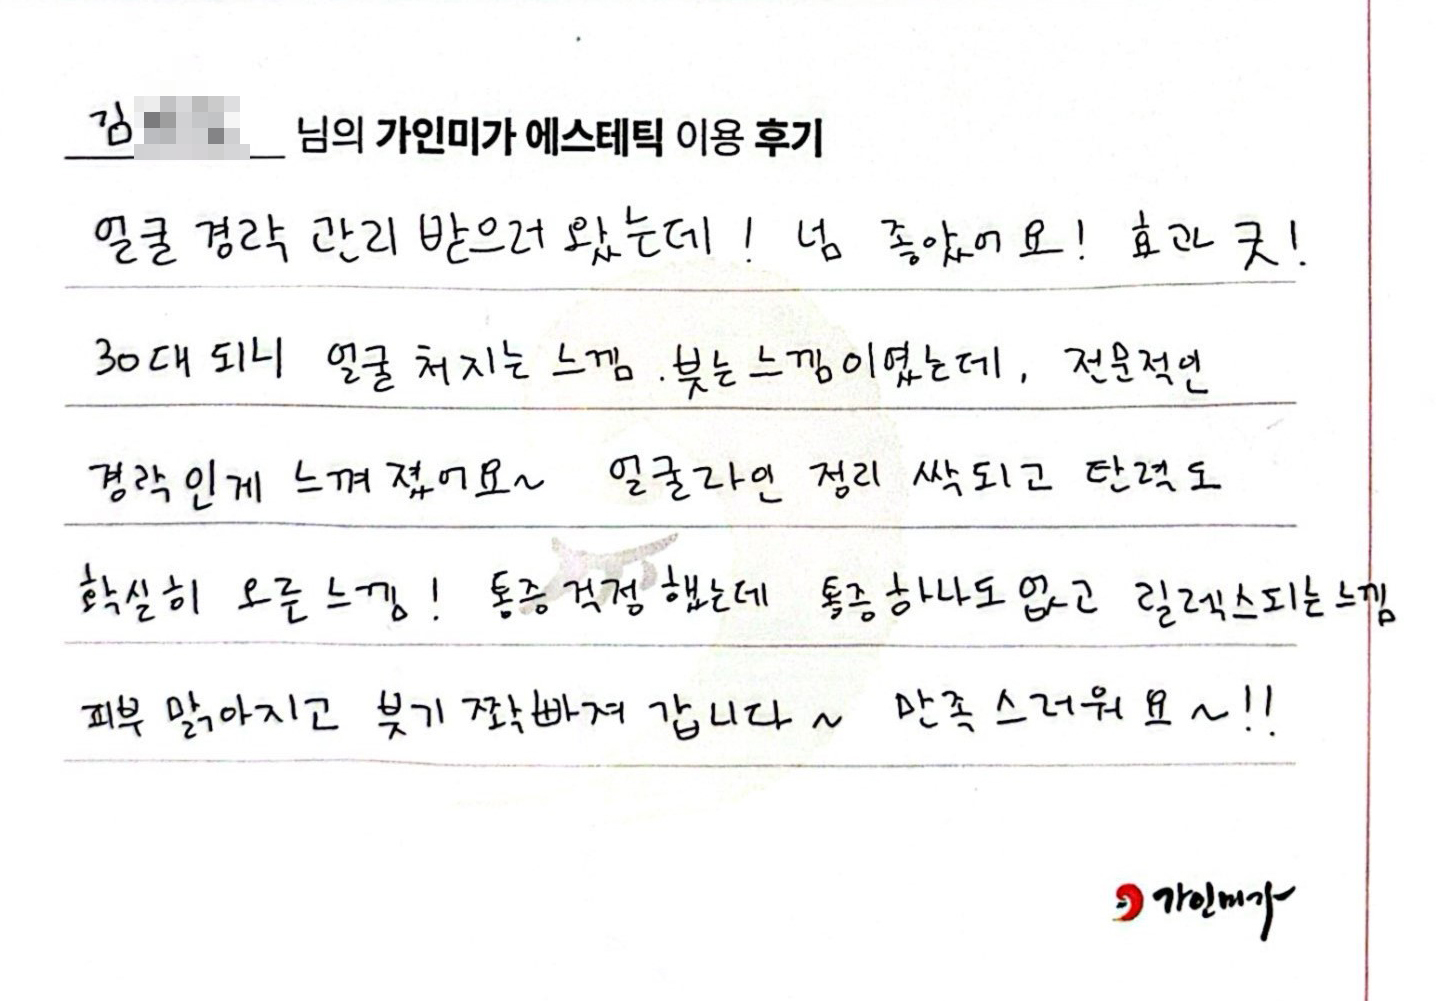 김 님의 가인미가 에스테틱 이용 후기
얼굴 경락 관리 받으러 왔는데! 넘 좋았어요! 효과 굿!
30대 되니 얼굴 처지는 느낌. 붓는 느낌이였는데, 전문적인
경락인게 느껴졌어요~ 얼굴라인 정리 싹되고 탄력도
확실히 오른 느낌! 통증 걱정했는데 통증 하나도 없고 릴렉스되는 느낌
피부 맑아지고 붓기 쫙빠져 갑니다~ 만족스러워요~!!
가인미가